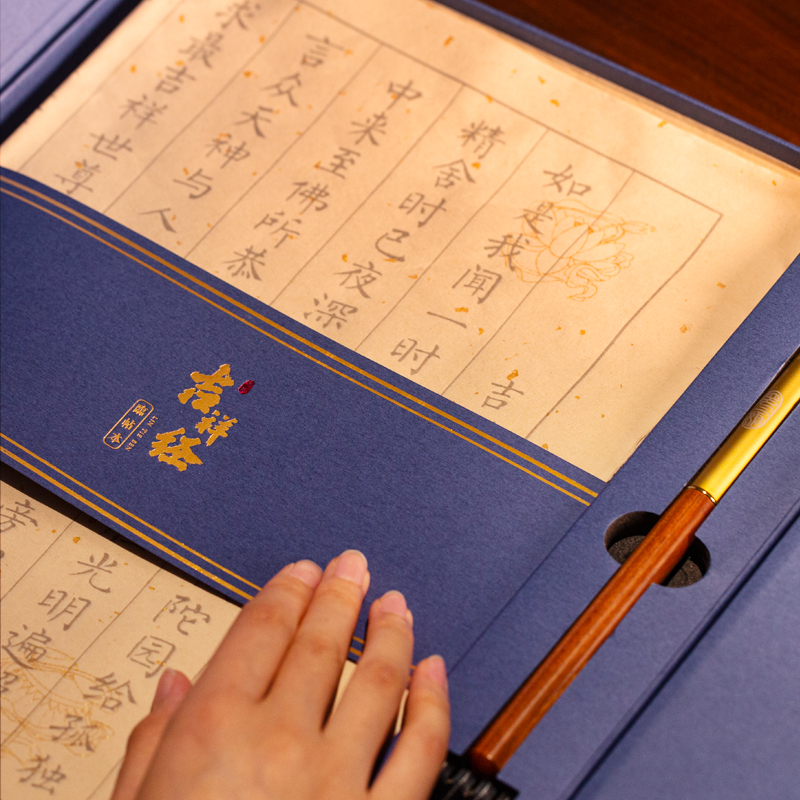 吉
如是我闻一时
精舍时已夜深
中来至佛所恭
言众天神与人
求最吉祥世尊
吉祥经
临帖本
LIN TIE BEN
陀园给孤独
光明遍照
旁